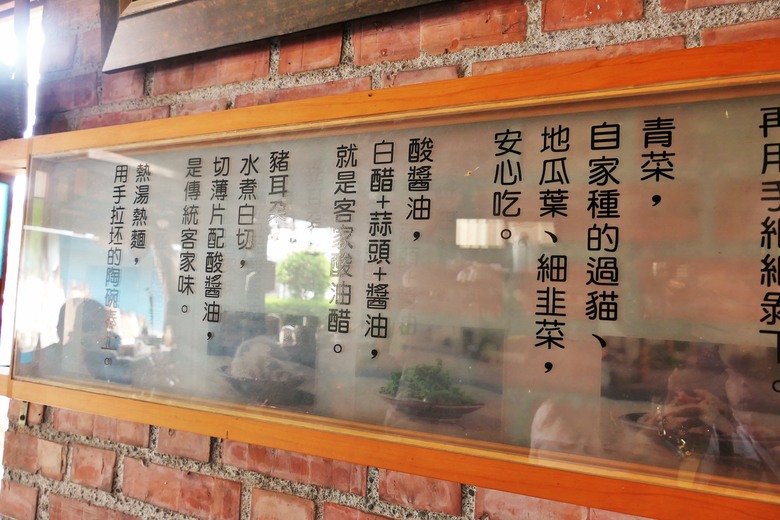 再用手細細剝下。
青菜，
自家種的過貓、
地瓜葉、細韭菜，
安心吃。
酸醬油，
白醋+蒜頭+醬油，
就是客家酸油醋。
豬耳朵，
水煮白切，
切薄片配酸醬油，
是傳統客家味。
熱湯熱麵，
用手拉坯的陶碗